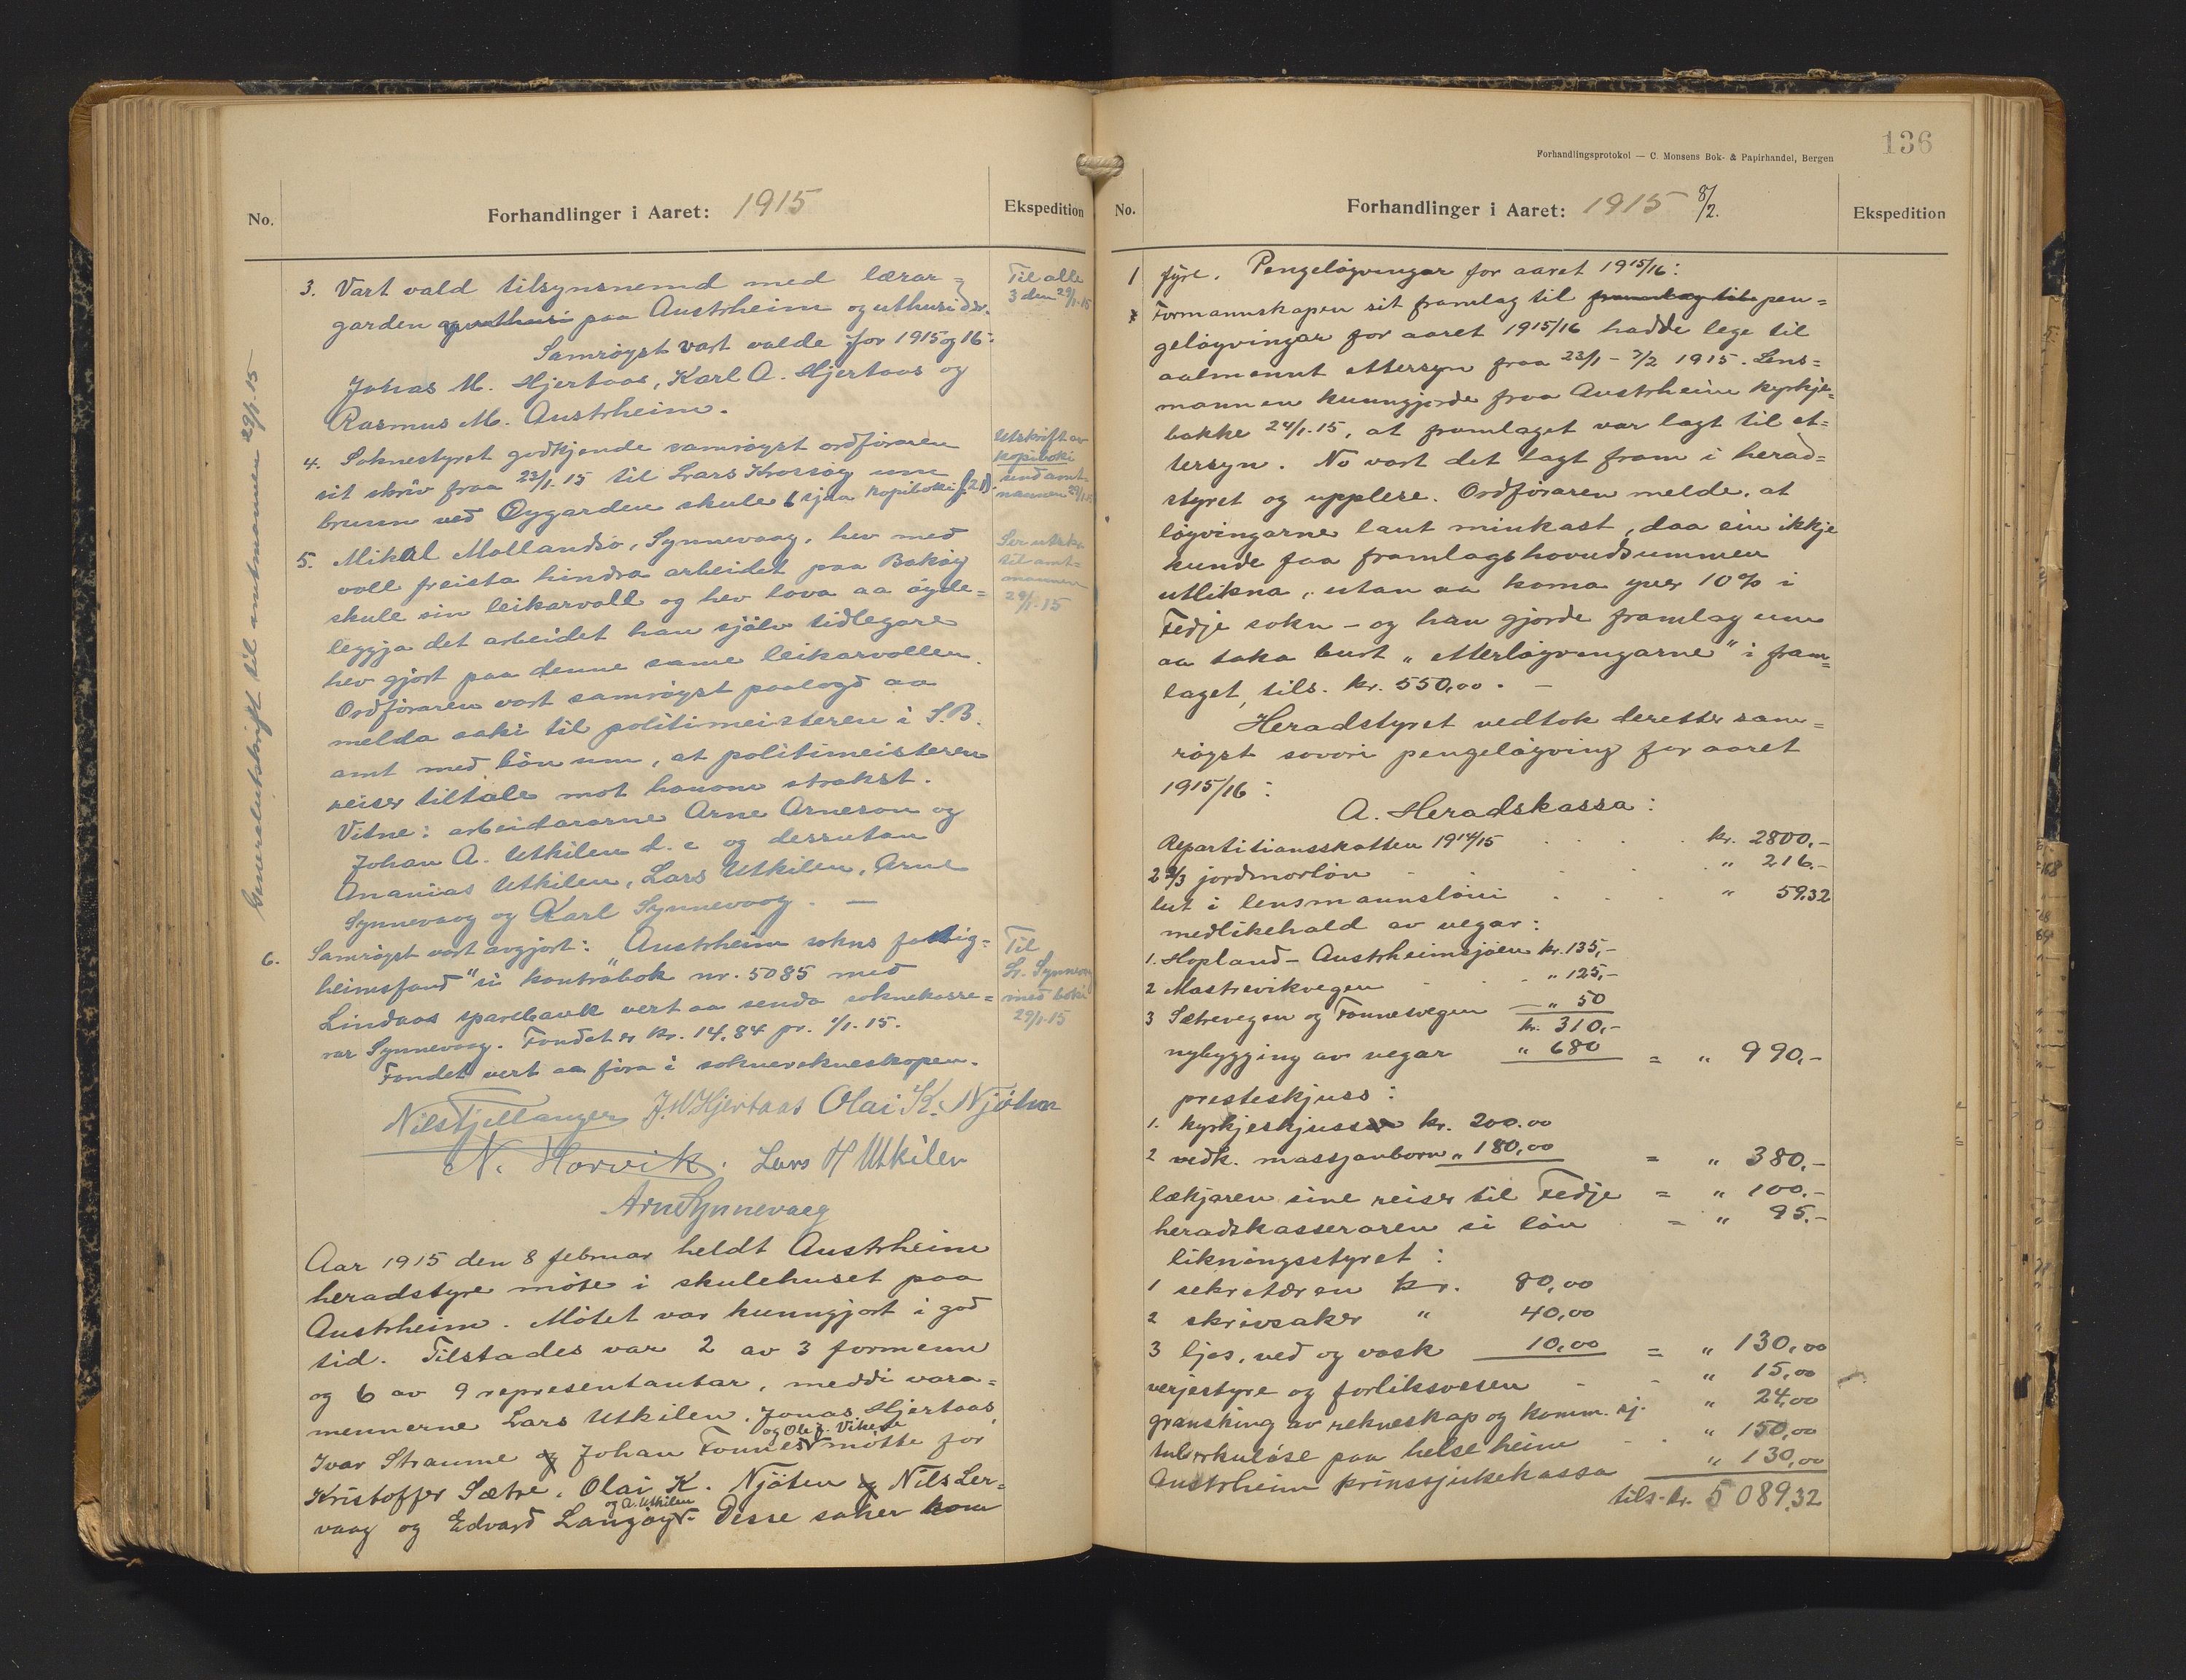 No.
Forhandlinger i Aaret: 1915
Ekspedition
Generalutskrift til amtmannen 29/1.15
3. Vart vald tilsynsnemd med lærar=
garden og uthusi paa Austrheim og uthusi der.
Samrøyst vart valde for 1915 og 16:
Johas M. Hjertaas, Karl A. Hjertaas og
Rasmus M. Austrheim.
Til alle
3 den 29/1.15
4. Soknestyret godkjende samrøyst ordføraren
sit skriv fraa 23/1.15 til Lars Krossøy um
brunn ved Øygarden skule (sjaa kopiboki s. 21).
Utskrift av
kopiboki
send amt-
mannen 29/1.15
5. Mikal Mollandsø, Synnevaag, hev med
vald freista hindra arbeidet paa Bakøy
skule sin leikarvoll og hev lova aa øyde=
leggja det arbeidet han sjølv tidlegare
hev gjort paa denne same leikarvollen.
Ordføraren vart samrøyst paalogd aa
melda saki til politimeisteren i S.B.
amt med bøn um, at politimeisteren
reiser tiltale mot honom strakst.
Vitne: arbeidararne Arne Arneson og
Johan A. Utkilen d. e og dessutan
Ananias Utkilen, Lars Utkilen, Arne
Synnevaag og Karl Synnevaag. —
Ser utskr.
til amt=
mannen
29/1.15
6. Samrøyst vart avgjort: Austrheim sokns fattig=
heimsfond "si kontrabok nr. 5085 med
Lindaas sparebank vert aa senda soknekasse=
rar Synnevaag. Fondet er kr. 14,84 pr. 1/1.15.
Fondet vert aa føra i soknerekneskapen.
Til
Sr. Synnevaag
med boki
29/1.15
Nils Fjellanger J. W Hjertaas Olai K. Njøten
N. Horvik. Lars H Utkilen
Arne Synnevaag
Aar 1915 den 8 februar heldt Austrheim
heradstyre møte i skulehuset paa
Austrheim. Møtet var kunngjort i god
tid. Tilstades var 2 av 3 formenn
og 6 av 9 representantar, meddi vara=
mennerne Lars Utkilen, Jonas Hjertaas,
og Ole J. Vikene
Ivar Straume og Johan Fonnes møtte for
Kristoffer Sætre, Olai K. Njøten og Nils Ler=
og A. Utkilen
vaag og Edvard Langøy. Desse saker kom
136
Forhandlingsprotokol — C. Monsens Bok- & Papirhandel, Bergen
No.
Forhandlinger i Aaret: 1915 8/2.
Ekspedition
1 fyre. Pengeløyvingar for aaret 1915/16:
Formannskapen sit framlag til framlag til pen=
geløyvingar for aaret 1915/16 hadde lege til
aalmennt ettersyn fraa 23/1 - 7/2 1915. Lens=
mannen kunngjorde fraa Austrheim kyrkje=
bakke 24/1.15, at framlaget var lagt til et=
tersyn. No vart det lagt fram i herad=
styret og upplese. Ordføraren melde, at
løyvingarne laut minkast, daa ein ikkje
kunde faa framlagshovudsummen
utlikna, utan aa koma yver 10% i
Fedje sokn - og han gjorde framlag um
aa taka burt "etterløyvingarne" i fram=
laget, tils. kr. 550,00. —
Heradstyret vedtok deretter sam=
røyst sovori pengeløyving for aaret
1915/16:
A. Heradskassa:
Repartitionsskatten 1914/15 . . . kr. 2800,-
2 2/3 jordmorløn . . . " 216.-
lut i lensmannsløni . . . " 59.32
medlikehald av vegar:
1. Hopland - Austrheimsjøen kr. 135,-
2 Mastrevikvegen . . " 125,-
3 Sætrevegen og Fonnesvegen " 50
kr. 310,-
nybygging av vegar " 680 = " 990,-
presteskjuss:
1. kyrkjeskjuss kr. 200.00
2 vedk. massjanborn " 180,00 = " 380,-
lækjaren sine reiser til Fedje = " 100.-
heradskasseraren si løn = " 95.-
likningsstyret:
1 sekretæren kr. 80,00
2 skrivsaker " 40,00
3 ljos, ved og vask 10,00 = " 130,00
verjestyre og forliksvesen - - " 15,00
gransking av rekneskap og komm. rj. " 24,00
tuberkuløse paa helseheim - . " 150,00
Austrheim krinssjukekassa " 130,00
tils. kr. 5089,32